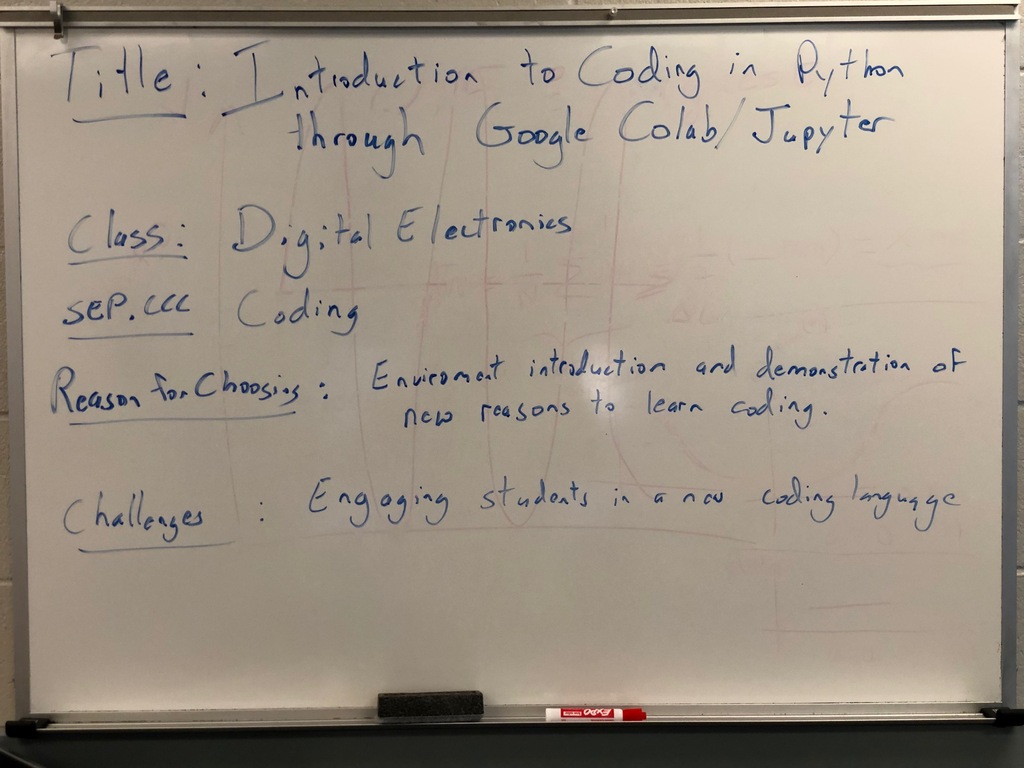 Title: Introduction to Coding in Python
through Google Colab/Jupyter
Class: Digital Electronics
SEP.CCC Coding
Reason for Choosing: Enviroment introduction and demonstration of
new reasons to learn coding.
Challenges : Engaging students in a new coding language
EXPO